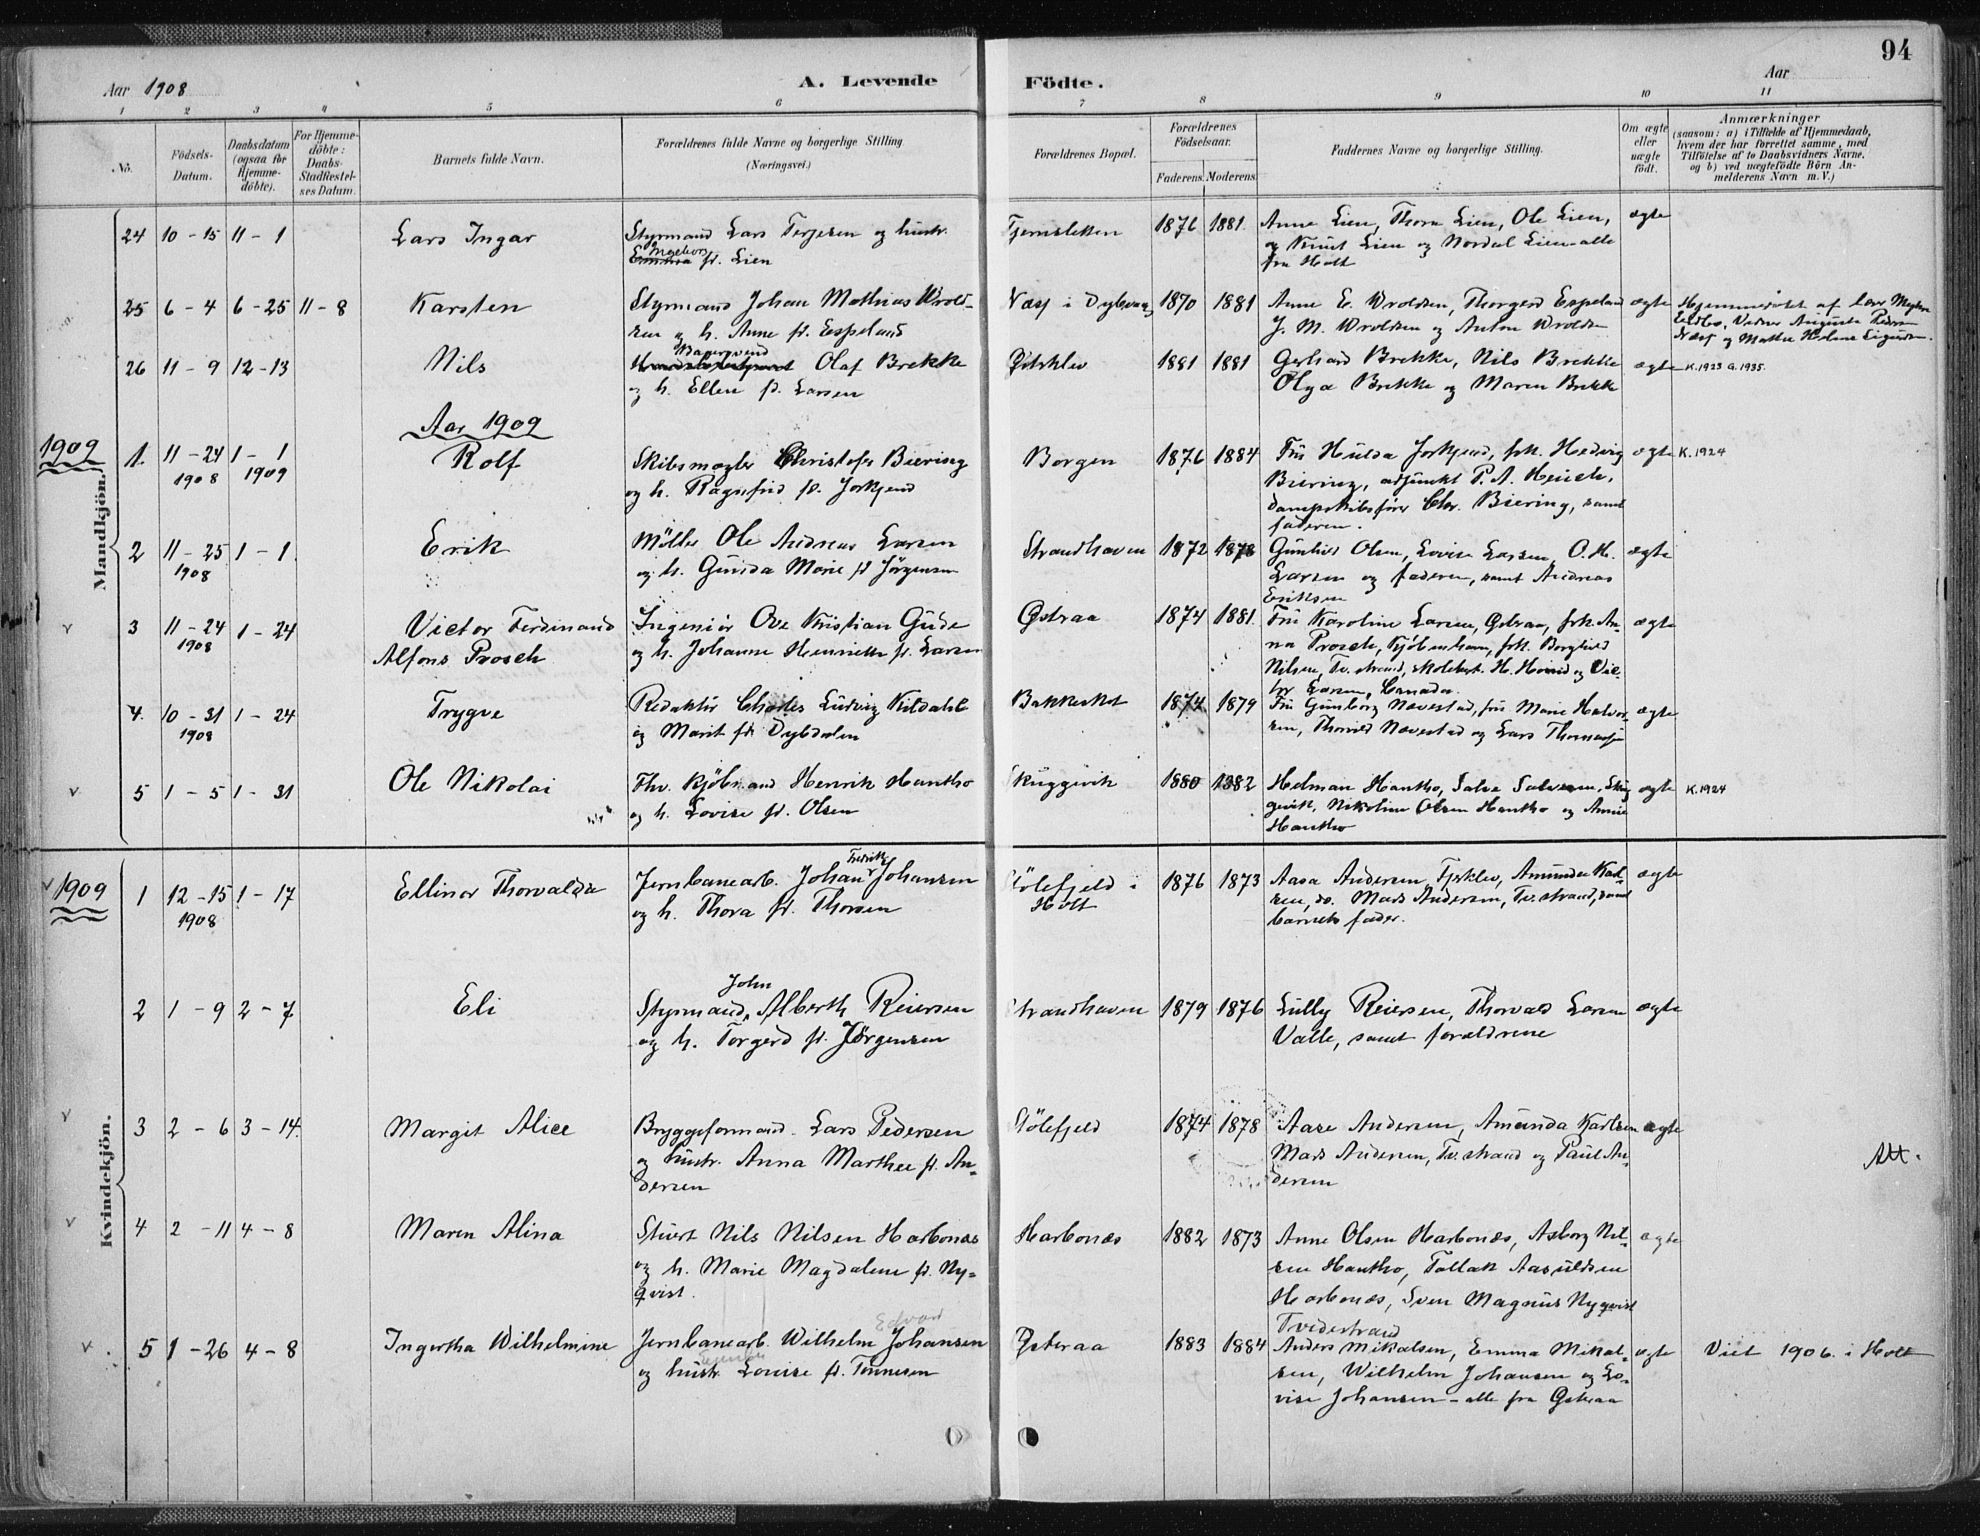 94
Aar 1908
A. Levende
Födte.
Aar
1 2 3 4 5 6 7 8 9 10 11
No.
Födsels-Datum.
Daabsdatum (ogsaa for Hjemme-döbte).
For Hjemme-döbte: Daabs-Stadfæstel-ses Datum.
Barnets fulde Navn.
Forældrenes fulde Navne og borgerlige Stilling (Næringsvei.)
Forældrenes Bopæl.
Forældrenes Födselsaar.
Faderens. Moderens.
Faddernes Navne og borgerlige Stilling.
Om ægte eller uægte födt.
Anmærkninger
(saasom: a) i Tilfælde af Hjemmedaab,
hvem der har forrettet samme, med
Tilföielse af to Daabsvidners Navne,
og b) ved uægtefödte Börn An-
melderens Navn m. V.)
Mandkjön.
24 10-15 11-1 Lars Ingar
Styrmand Lars Terjesen og hustr.
Ingeborg
Emma fd. Lien
1876 1881
Anne Lien, Thora Lien, Ole Lien,
og Knut Lien og Nordal Lien - alle
fra Holt
ægte
25 6-4 6-25 11-8 Karsten
Styrmand Johan Mathias Wrold-
sen og h. Anne fd. Espeland
Næs i Dybvaag 1870 1881
Anne E. Wroldsen, Thorgerd Espeland
J. M. Wroldsen og Anton Wroldsen
ægte
Hjemmedøbt af
26 11-9 12-13 Nils
Olaf Brekke
og h. Ellen fd. Larsen
1881 1881
Gerhard Brekke, Nils Brekke
Olga Brekke og Maren Brekke
ægte K.1923 G.1935.
Aar 1909
1909
1. 11-24 1908 1-1 1909 Rolf
Skibsmægler Christofer Biering
og h. Ragnfrid fd. Jorkjend
Borgen 1876 1884
Fru Hulda Jorkjend, frk. Hedvig
Biering, adjunkt P. A. Heuch,
dampskibsfører Chr. Biering, samt
faderen.
ægte K.1924
2 11-25 1908 1-1 Erik
Møller Ole Andreas Larsen
og h. Gunda Marie fd Jørgensen
Strandhaven 1872 1878
Gunhild Olsen, Lovise Larsen, O. H.
Larsen og faderen, samt Andreas
Eriksen
ægte
3 11-24 1908 1-24 Victor Ferdinand
Alfons Prosch
Ingeniør Ove Kristian Gude
og h. Johanne Henriette fd. Larsen
Østraa 1874 1881
Fru Karoline Larsen, Østraa, frk. An-
na Prosch, Kjøbenhavn, frk. Borghild
Nilsen, Tv.strand, skolebest. H. Hovind og Vic-
tor Larsen, Canada.
ægte
4. 10-31 1908 1-24 Trygve
Redaktør Charles Ludvig Kildahl
og Marit fd. Dybdalen
Bakkeskot 1874 1879
Fru Gunborg Nævestad, fru Marie Halvor-
sen, Thorvald Nævestad og Lars
ægte
5 1-5 1-31 Ole Nikolai
Fhv. Kjøbmand Henrik Hantho
og h. Lovise fd. Olsen
Skuggevik 1880 1882
Helman Hantho, Salve Salvesen, Skug
gevik, Nikoline Olsen Hantho og Annie
Hantho
ægte K.1924
Kvindekjön.
1909
1 12-15 1908 1-17 Ellinor Thorvalda
Fredrik
Jernbanearb. Johan Johansen
og h. Thora fd. Thorsen
Stølefjeld i
Holt
1876 1873
Aasa Andersen, Fjærklev, Amunda Karl-
sen, do. Mads Andersen, Tv.strand, samt
barnets fader.
ægte
2 1-9 2-7 Eli
John
Styrmand Alberth Reiersen
og h. Torgerd fd. Jørgensen
Strandhaven 1879 1876
Lully Reiersen, Thorvald Larsen
Valle, samt forældrene
ægte
3 2-6 3-14. Margit Alice
Bryggeformand Lars Pedersen
og hustr. Anna Marthea fd. An-
dersen
Stølefjeld 1874 1878
Aase Andersen, Amunda Karlsen
Mads Andersen, Tv.strand og Paul An-
dersen
ægte
Att.
4 2-11 4-8 Maren Alina
Stuert Nils Nilsen Harbonæs
og h. Marie Magdalene fd. Ny-
qvist.
Harbonæs 1882 1873
Anne Olsen Harbonæs, Asborg Nil-
sen Hantho, Tallak Aasuldsen
Harbonæs, Sven Magnus Nyqvist
Tvedestrand
ægte
5 1-26 4-8 Ingertha Wilhelmine
Edvard
Jernbanearb. Wilhelm Johansen
og hustr. Louise fd. Tønnesen
Østeraa 1883 1884
Anders Mikalsen, Emma Mikal-
sen, Wilhelm Johansen og Lo-
vise Johansen - alle fra Østeraa
ægte
Viet 1906 i Holt